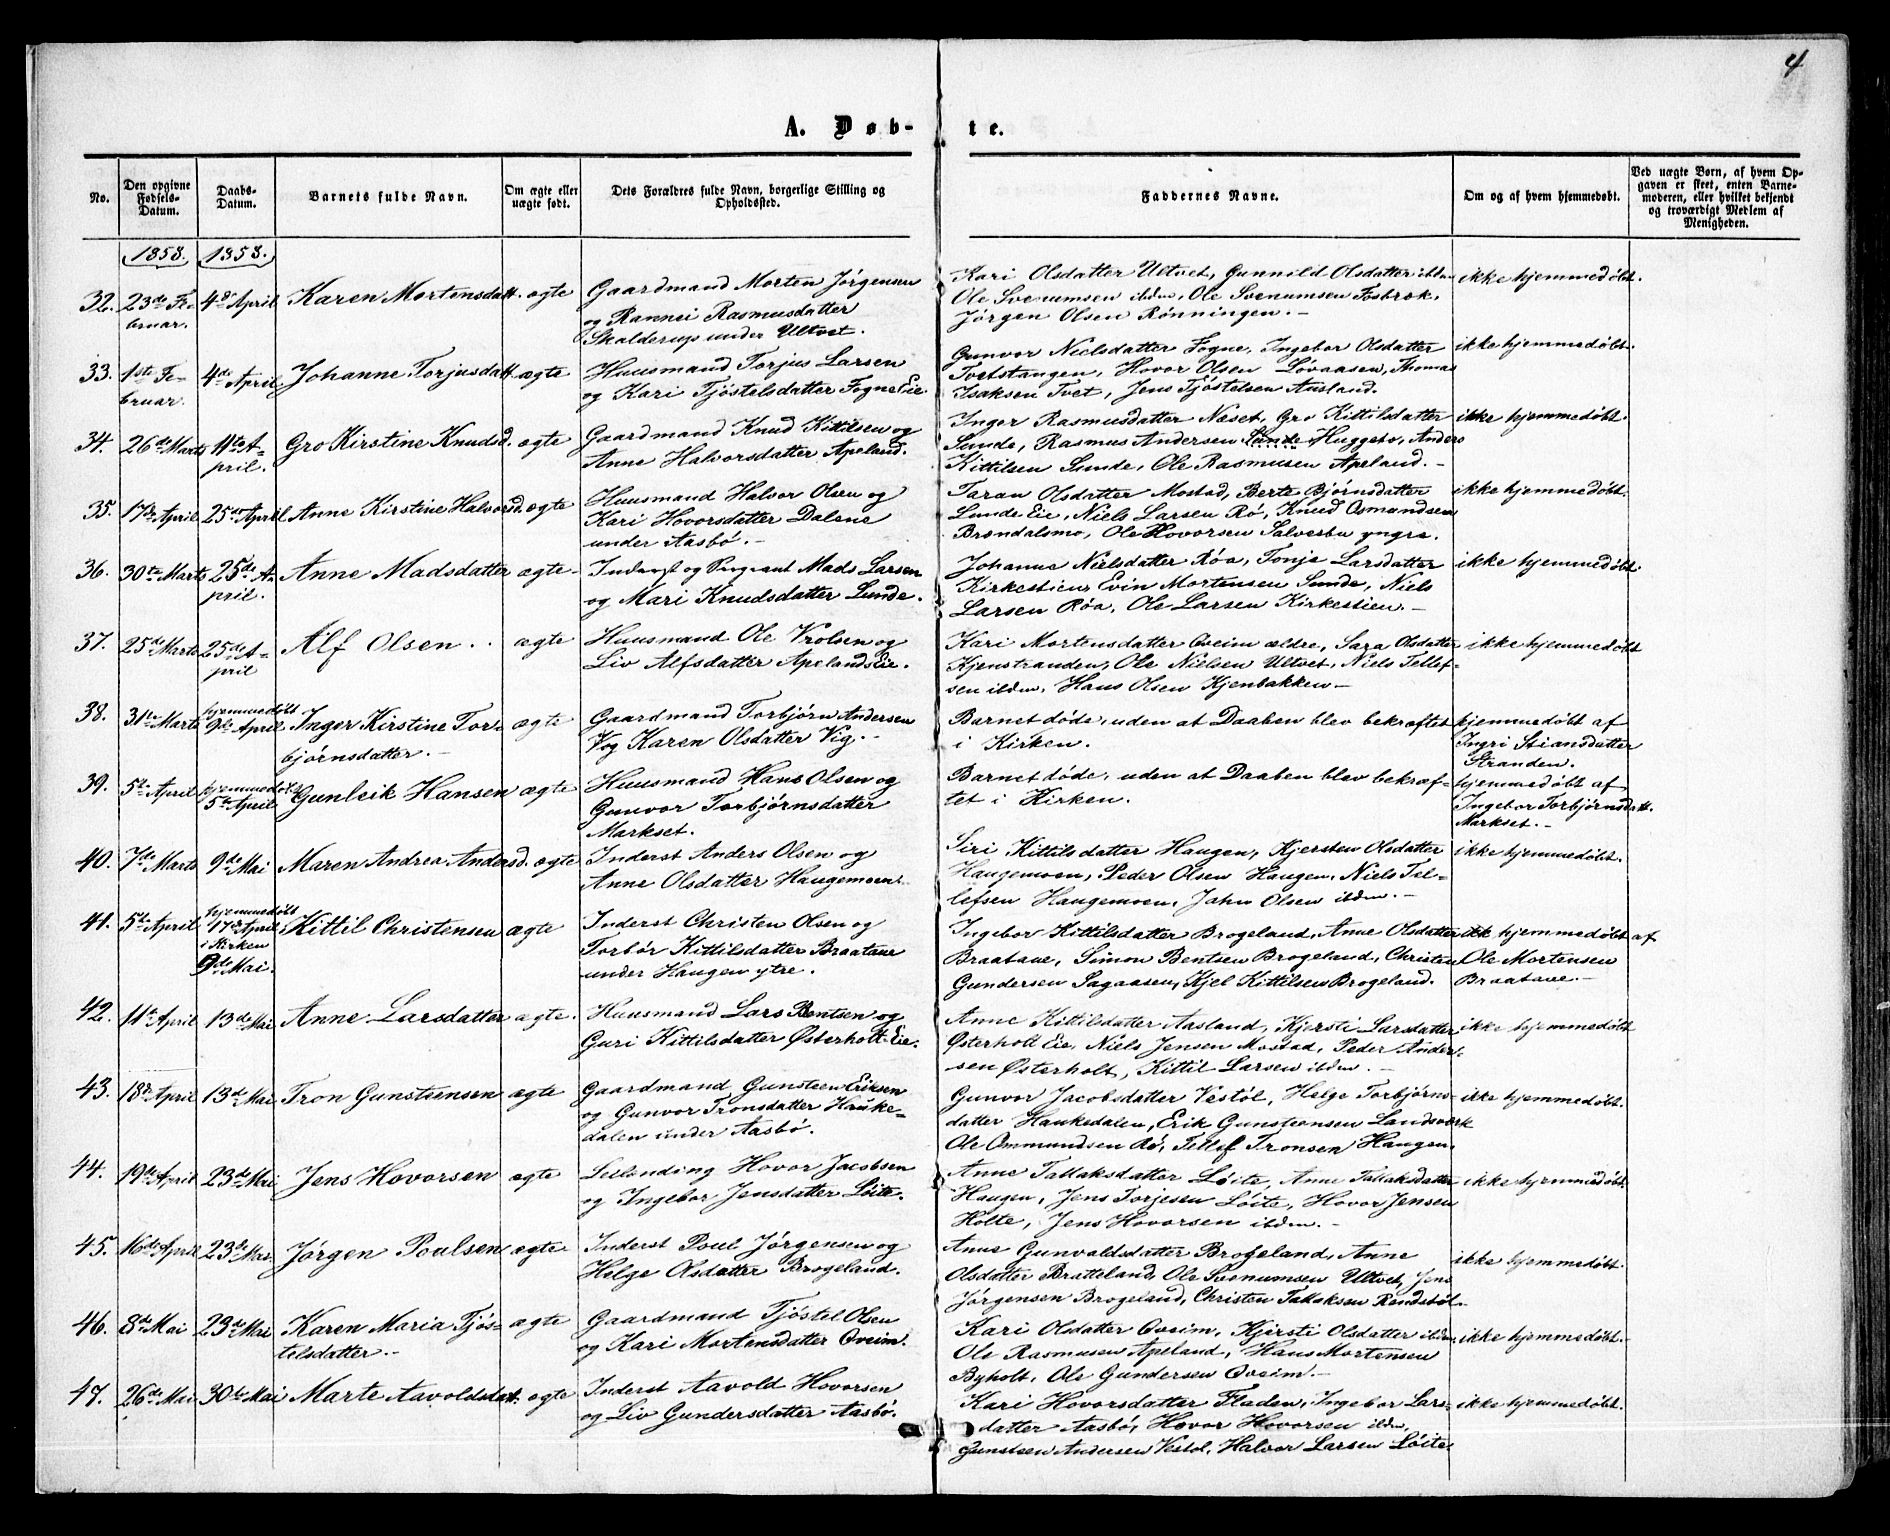 4
A. Døb-te.
No.
Den opgivne Fødsels-Datum.
Daabs-Datum.
Barnets fulde Navn.
Om ægte eller uægte født.
Dets Forældres fulde Navn, borgerlige Stilling og Opholdssted.
Faddernes Navne.
Om og af hvem hjemmedøbt.
Ved uægte Børn, af hvem Opgaven er skeet, enten Barnemoderen, eller hvilket bekjendt og troværdigt Medlem af Menigheden.
1858. 1858.
32. 23de Fe- 4de April Karen Mortensdatt. ægte Gaardmand Morten Jørgensen Kari Olsdatter Ultvet, Gunnild Olsdatter ibdm ikke hjemmedøbt.
bruar. og Rannei Rasmusdatter Ole Svenumsen ibdm, Ole Svenumsen Fosbræk,
Skalderup under Ultvet. Jørgen Olsen Rønningen.
33. 1ste Fe- 4de April Johanne Torjusdatt. ægte Huusmand Torjus Larsen Gunvor Nielsdatter Fogne, Ingebor Olsdatter ikke hjemmedøbt.
bruar. og Kari Tjøstelsdatter Fogne Eie Tvetstangen, Hovor Olsen Løvaasen, Thomas
Isaksen Tvet, Jens Tjøstelsen Ausland.
34. 26de Marts 11te A- Gro Kirstine Knudsd. ægte Gaardmand Knud Kittilsen og Inger Rasmusdatter Næset, Gro Kittilsdatter ikke hjemmedøbt.
pril. Anne Halvorsdatter Apeland. Lunde, Rasmus Andersen Lunde Huggebo, Anders
Kittilsen Lunde, Ole Rasmusen Apeland.
35. 17de April 25de April Anne Kirstine Halvorsd. ægte Huusmand Halvor Olsen og Taran Olsdatter Mostad, Berte Bjørnsdatter ikke hjemmedøbt.
Kari Hovorsdatter Dalene Lunde Eie, Niels Larsen Rø, Knud Osmundsen
under Aasbø. Brændalsmo, Ole Hovorsen Salvesbu yngre.
36. 30te Marts 25de A- Anne Madsdatter ægte Inderst og Sergeant Mads Larsen Johanne Nielsdatter Røa, Tonje Larsdatter ikke hjemmedøbt.
pril. og Mari Knudsdatter Lunde. Kirkestien, Evin Mortensen Lunde, Niels
Larsen Røa, Ole Larsen Kirkestien.
37. 25de Marts 25de A- Alf Olsen. ægte Huusmand Ole Vrolsen og Kari Mortensdatter Qveim ældre, Sara Olsdatter ikke hjemmedøbt
pril Liv Alfsdatter Apelands Eie. Kjenstranden, Ole Nielsen Ultvet, Niels Tellef-
sen ibdm, Hans Olsen Kjenbakken
38. 31te Marts hjemmedøbt 9de April Inger Kirstine Tor- ægte Gaardmand Torbjørn Andersen Barnet døde, uden at Daaben blev bekræftet hjemmedøbt af
bjørnsdatter. og Karen Olsdatter Vig. i Kirken. Ingri Stiansdatter
Stranden.
39. 5te April hjemmedøbt 5te April Gunleik Hansen ægte Huusmand Hans Olsen og Barnet døde, uden at Daaben blev bekræf- hjemmedøbt af
Gunvor Torbjørnsdatter tet i Kirken. Ingebor Torbjørnsdatt.
Markset. Markset.
40. 7de Marts 9de Mai Maren Andrea Andersd. ægte Inderst Anders Olsen og Siri Kittilsdatter Haugen, Kjersten Olsdatter ikke hjemmedøbt.
Anne Olsdatter Haugemoen. Haugemoen, Peder Olsen Haugen, Niels Tel-
lefsen Haugemoen, Jahn Olsen ibdm.
41. 5te April hjemmedøbt 17de April Kittil Christensen ægte Inderst Christen Olsen og Ingebor Kittilsdatter Brogeland, Anne Olsdatter hjemmedøbt af
i Kirken Torbør Kittilsdatter Braatane Braatane, Simon Bentsen Brogeland, Christen Ole Mortensen
9de Mai. under Haugen ytre. Gundersen Sagaasen, Kjel Kittilsen Brogeland. Braatane.
42. 11te April 13de Mai Anne Larsdatter ægte. Huusmand Lars Bentsen og Anne Kittilsdatter Aasland, Kjersti Larsdatter ikke hjemmedøbt
Guri Kittilsdatter Østerholt Eie. Østerholt Eie, Niels Jensen Mostad, Peder Ander-
sen Østerholt, Kittil Larsen ibdm.
43. 18de April 13de Mai Tron Gunsteensen ægte Gaardmand Gunsteen Eriksen Gunvor Jacobsdatter Vestøl, Helge Torbjørns- ikke hjemmedøbt.
og Gunvor Tronsdatter Hauke- datter Haukedalen, Erik Gunsteensen Landsværk
dalen under Aasbø. Ole Ommundsen Rø, Tellef Tronsen Haugen.
44. 19de April 23de Mai Jens Hovorsen ægte Leilending Hovor Jacobsen Anne Tallaksdatter Løite, Anne Tallaksdatter ikke hjemmedøbt.
og Ingebor Jensdatter Løite. Haugen, Jens Torjesen Løite, Hovor Jensen
Holte, Jens Hovorsen ibdm.
45. 16de April 23de Mai Jørgen Poulsen ægte Inderst Poul Jørgensen og Anne Gunvaldsdatter Brogeland, Anne ikke hjemmedøbt.
Helge Olsdatter Brogeland. Olsdatter Bratteland, Ole Svenumsen Ultvet, Jens
Jørgensen Brogeland, Christen Tallaksen Rendsbøl.
46. 8de Mai 23de Mai Karen Maria Tjøs- ægte Gaardmand Tjøstel Olsen Kari Olsdatter Qveim, Kjersti Olsdatter ibdm, ikke hjemmedøbt.
telsdatter. og Kari Mortensdatter Qveim. Ole Rasmusen Apeland, Hans Mortensen
Byholt, Ole Gundersen Qveim.
47. 26de Mai 30te Mai Marte Aavoldsdatt. ægte Inderst Aavold Hovorsen Kari Hovorsdatter Fladen, Ingebor Lars- ikke hjemmedøbt.
og Liv Gundersdatter Aasbø. datter Aasbø, Hovor Hovorsen ibdm,
Gunsteen Andersen Vestøl, Halvor Larsen Løite